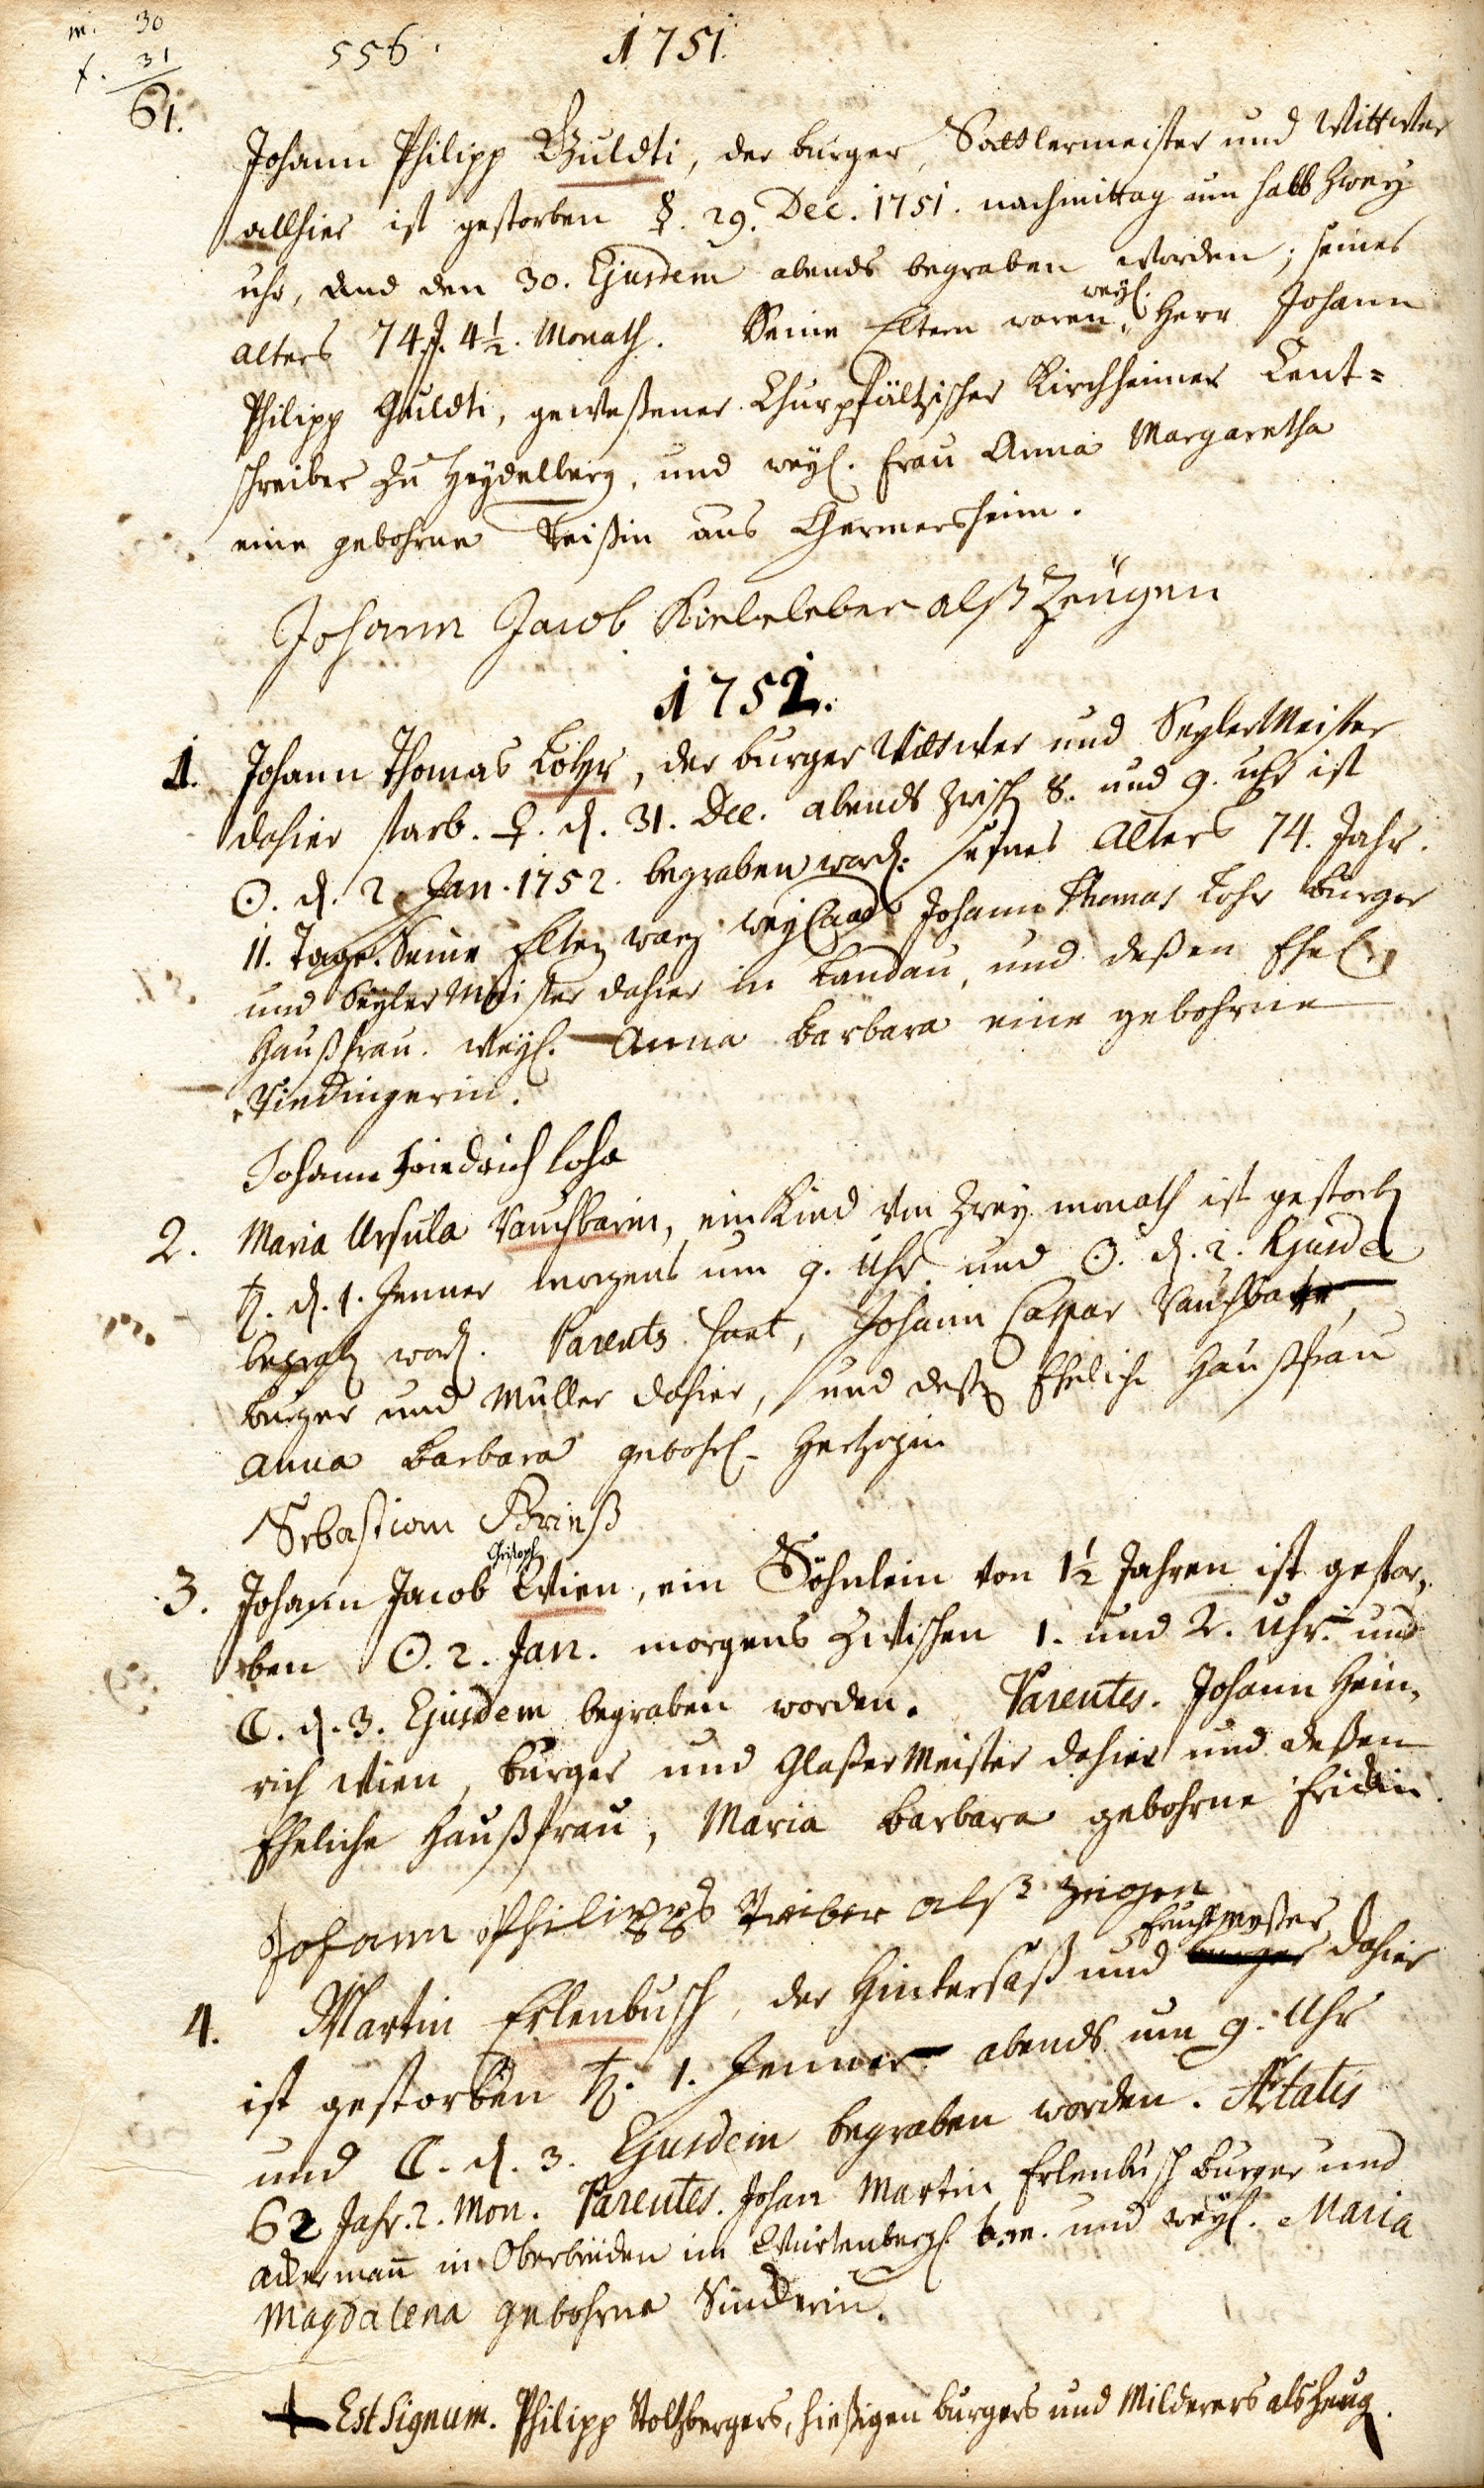 m. 30
f. 31
61.
556.
1751.
Johann Philipp Guldti, der burger, Sattlermeister und Wittwer
allhier ist gestorben ☿. 29. Dec. 1751. nachmittag um halb Zwey
uhr, und den 30. Ejusdem abends begraben worden, seines
alters 74. J. 4½. Monath. Seine Eltern waren, weyl. Herr Johann
Philipp Guldti, geweßener Churpfältzischer Kirchheimer Cent=
schreiber zu Heydelberg, und weyl. frau Anna Margaretha
eine gebohrne Treißin aus Germersheim.
Johann Jacob alß Zeügen
1752.
1. Johann Thomas Lohr, der burger Wittwer und SeylerMeister
dahier starb. ♀. d. 31. Dec. abends zwisch 8. und 9. uhr ist
☉. d. 2. Jan. 1752. begraben word. seines Alters 74. Jahr.
11. Tage. Seine Elten waren weyland Johann Thomas Lohr burger
und Seyler Meister dahier in Landau, und deßen Ehel.
Haußfrau. weyl. Anna barbara eine gebohrne
Johann Friedrich Lohr
2. Maria Ursula Vauchbarin, ein Kind von Zwey monath ist gestorb
♄. d. 1. Jenner morgens um 9. Uhr und ☉. d. 2. Ejusd
begrab word. Parents hant, Johann Caspar Vauchbar,
burger und Muller dahier, und deß Eheliche Haußfrau
Anna barbara gebohrl. Hertzogin
Sebastian Prinß
3. Johann Jacob Christoph Wien, ein Söhnlein von 1½ Jahren ist gestor,
ben ☉. 2. Jan. morgens zwischen 1. und 2. Uhr. und
☾. d. 3. Ejusdem begraben worden. Parentes. Johann Hein,
rich Wien, burger und Glaßer Meister dahier und deßen
Eheliche Haußfrau, Maria barbara gebohrne
Johann Philipps Treiber alß zeigen
4. Martin Erlenbusch, der Hintersaß und Fruchtmeßer dahier
ist gestorben ♄. 1. Jenner abends um 9. Uhr
und ☾. d. 3. Ejusdem begraben worden. Ætatis
62 Jahr. 2. Mon. Parentes. Johan Martin Erlenbusch burger und
ackermañ in Oberbrüden im Würtenbergl. und weyl. Maria
Magdalena gebohrne
+ Est Signum. Philipp Stoltzbergers, hießigen burgers und Milderers als Zeug.